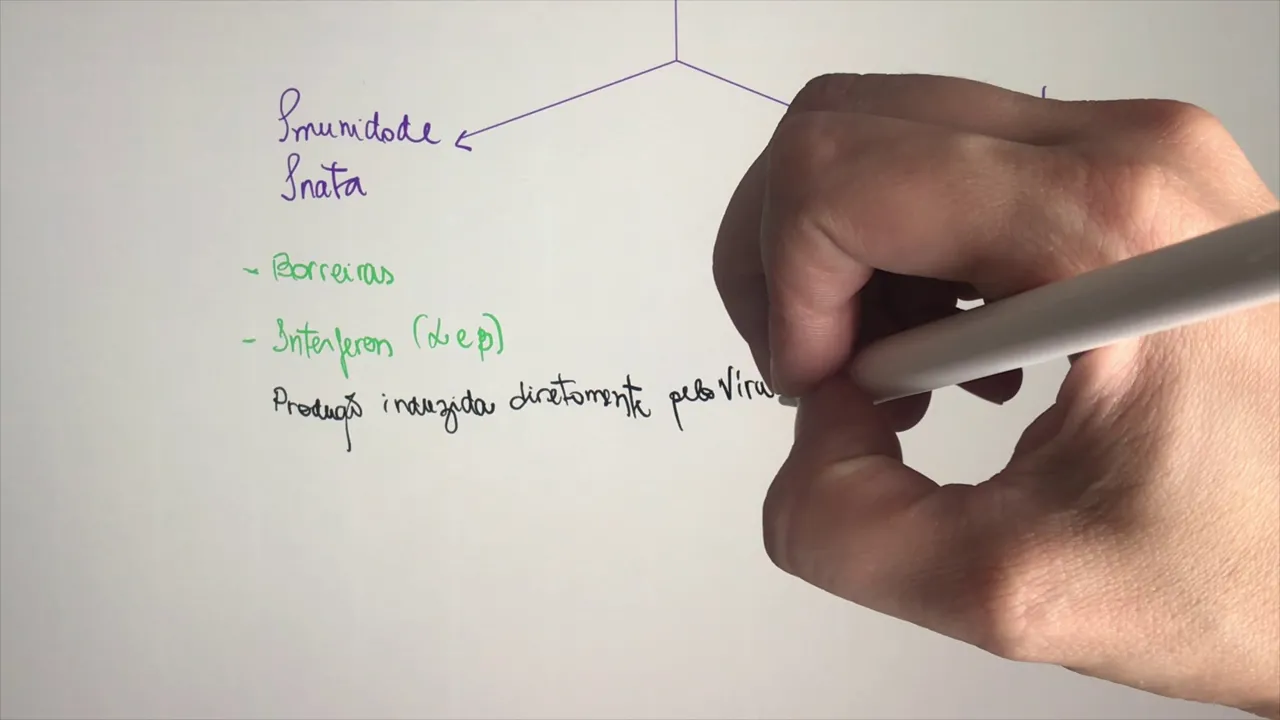 Imunidade
Inata
- Barreiras
- Interferon (α e β)
Produção induzida diretamente pelo Víru